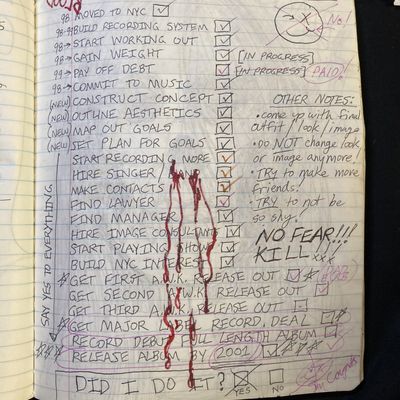 98- MOVED TO NYC
No!
98-99 BUILD RECORDING SYSTEM
98→ START WORKING OUT
98→ GAIN WEIGHT [IN PROGRESS]
99→ PAY OFF DEBT [IN PROGRESS] PAID!
98→ COMMIT TO MUSIC
(NEW) CONSTRUCT CONCEPT
(NEW) OUTLINE AESTHETICS
(NEW) MAP OUT GOALS
(NEW) SET PLAN FOR GOALS
START RECORDING MORE
HIRE SINGER / BAND
MAKE CONTACTS
FIND LAWYER
FIND MANAGER
HIRE IMAGE CONSULTANT
START PLAYING SHOWS
BUILD NYC INTEREST
$ GET FIRST A.W.K. RELEASE OUT $
GET SECOND A.W.K. RELEASE OUT
GET THIRD A.W.K. RELEASE OUT
$ GET MAJOR LABEL RECORD DEAL $
RECORD DEBUT FULL LENGTH ALBUM
$$$ RELEASE ALBUM BY 2001 $$$
SAY YES TO EVERYTHING
OTHER NOTES:
• come up with final
outfit / look / image
• do NOT change look
or image anymore!
• TRY to make more
friends!
• TRY to not be
so shy!
NO FEAR!!!
KILL xxx
DID I DO IT? YES NO